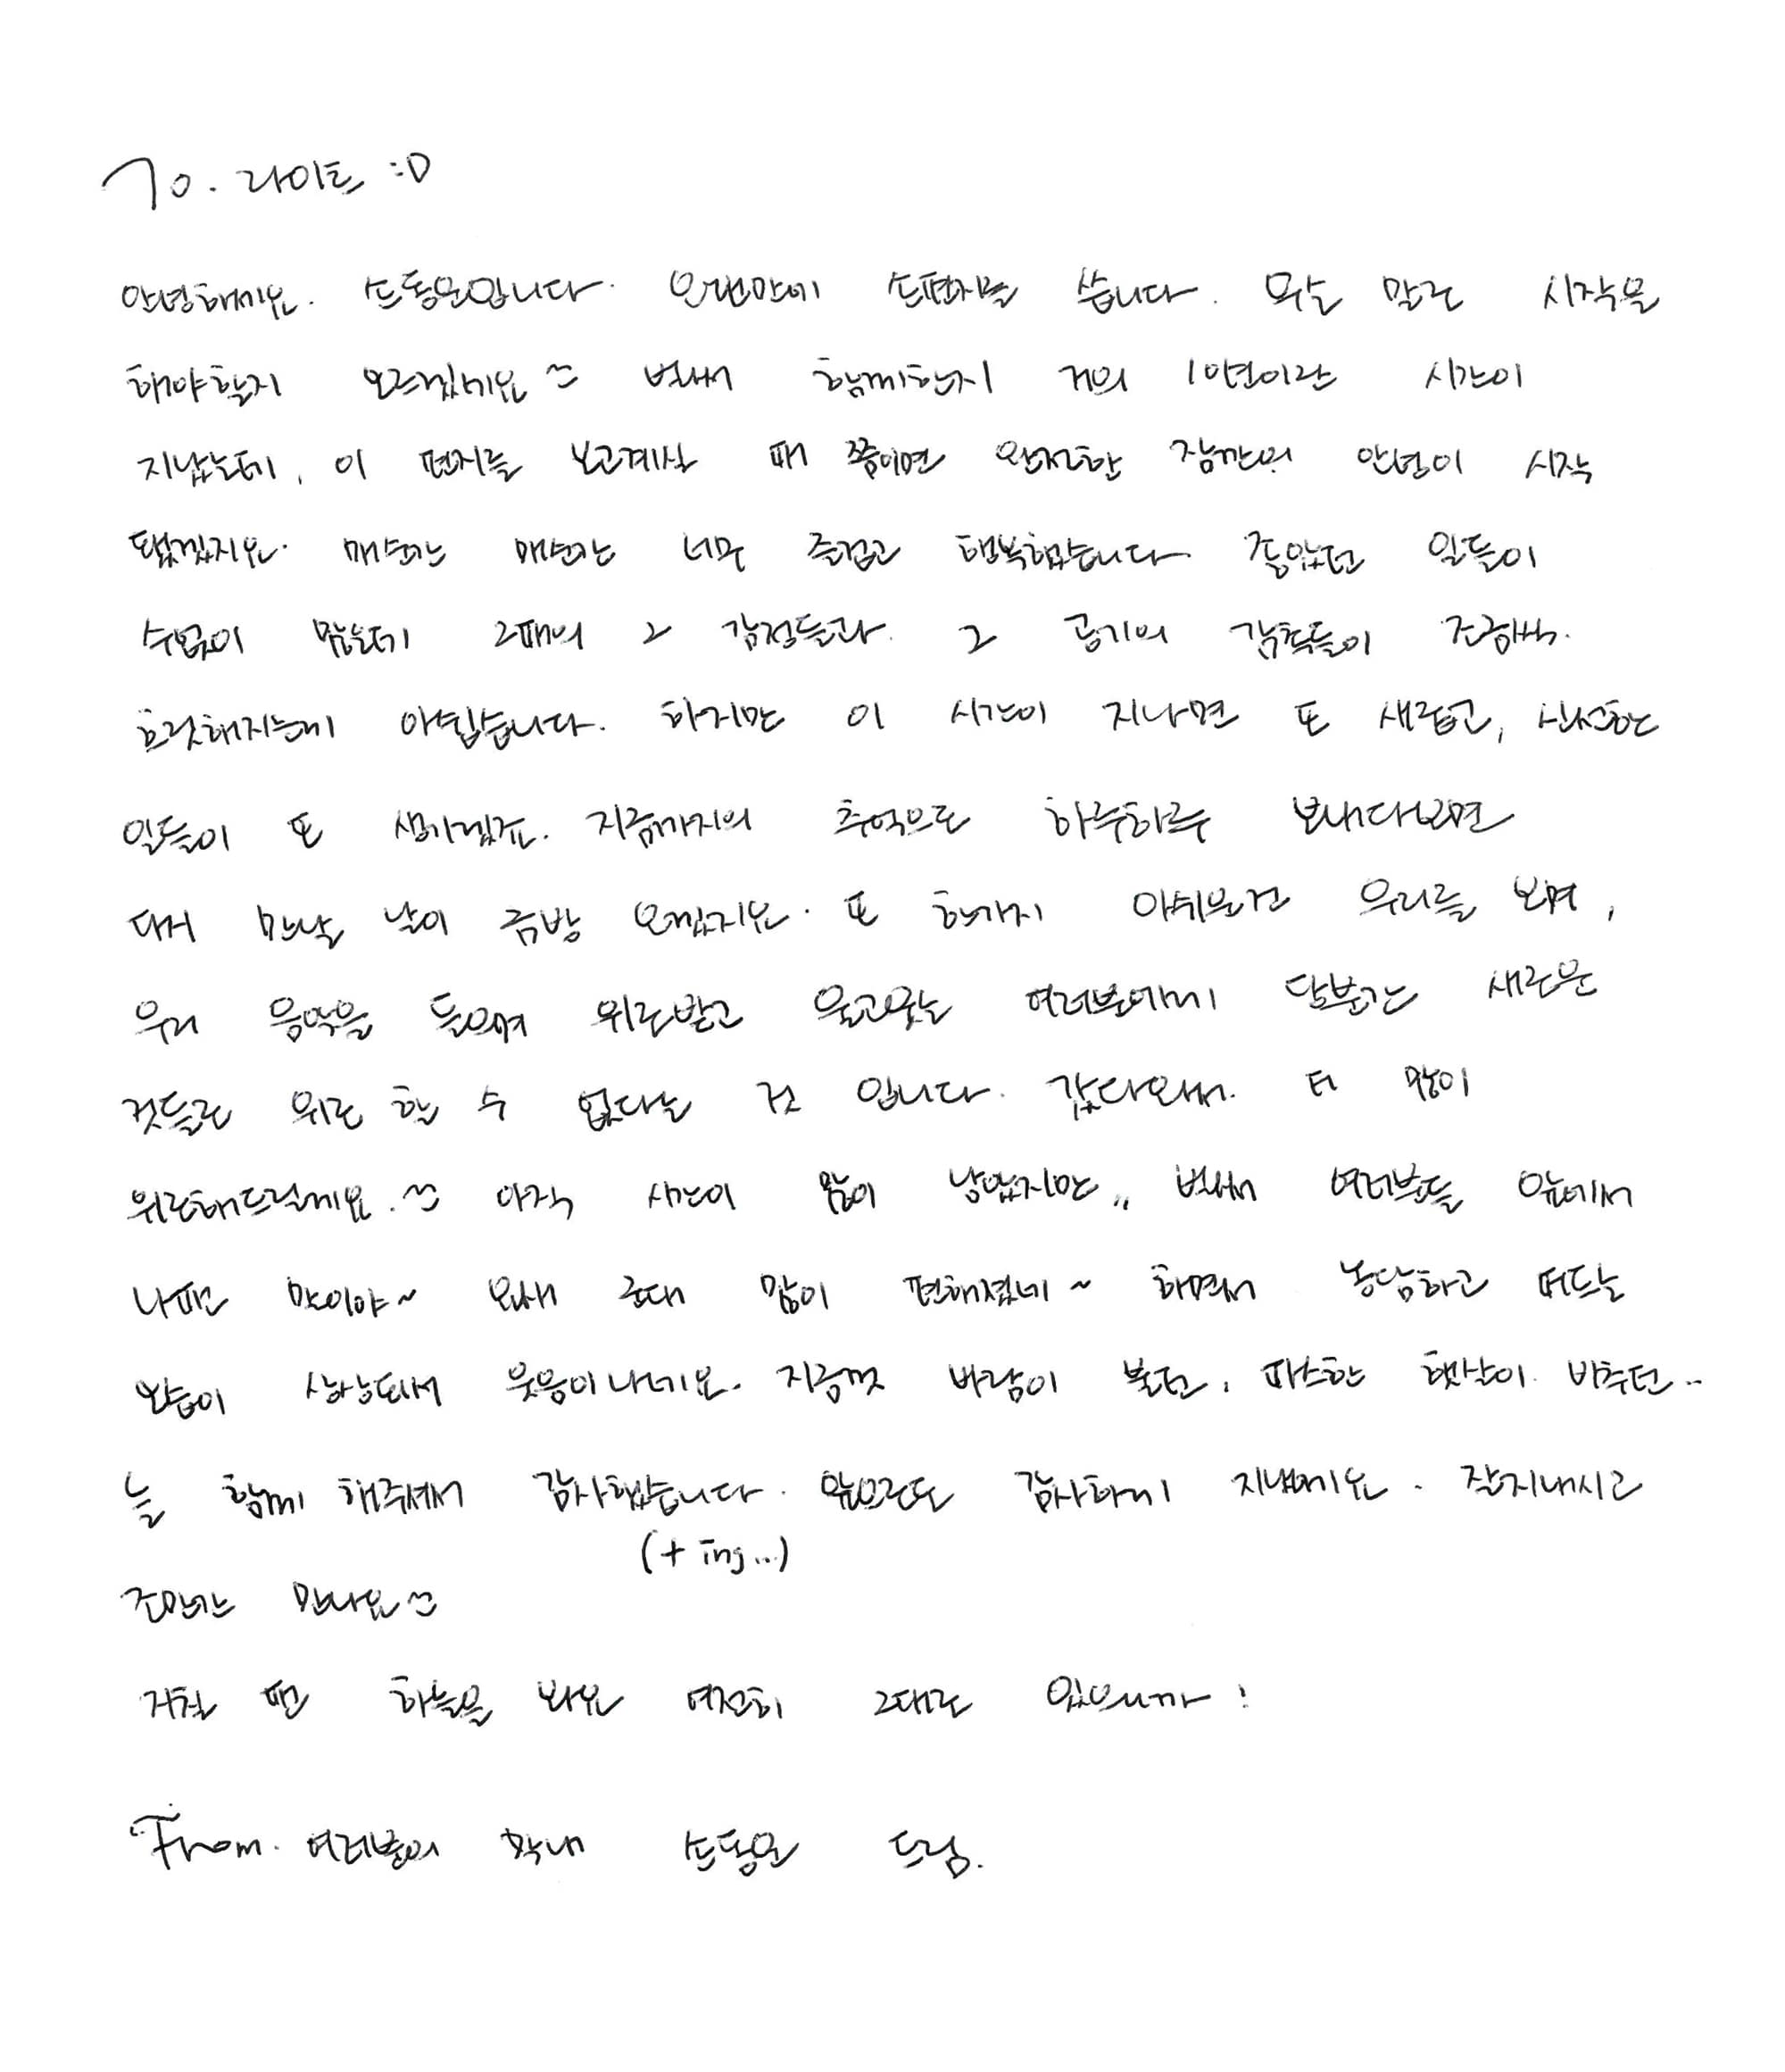 To. 라이트 :D
안녕하세요. 손동운입니다. 오랜만에 손편지를 씁니다. 무슨 말로 시작을
해야할지 모르겠네요 벌써 함께한지 거의 10년이란 시간이
지났는데, 이 편지를 보고계실 때 쯤이면 완전한 잠깐의 안녕이 시작
됐겠지요. 매순간 매순간 너무 즐겁고 행복했습니다. 좋았던 일들이
수없이 많은데 그때의 그 감정들과. 그 공기의 감촉들이 조금씩.
흐릿해지는게 아쉽습니다. 하지만 이 시간이 지나면 또 새롭고, 신선한
일들이 또 생기겠죠. 지금까지의 추억으로 하루하루 보내다보면
다시 만날 날이 금방 오겠지요. 또 한가지 아쉬운건 우리를 보며,
우리 음악을 들으며 위로받고 울고웃는 여러분에게 당분간 새로운
것들로 위로 할 수 없다는 것 입니다. 갔다와서. 더 많이
위로해드릴게요. 아직 시간이 많이 남았지만,, 벌써 여러분들 앞에서
나때는 말이야~ 요새 군대 많이 편해졌네~ 하면서 농담하고 떠드는
모습이 상상되서 웃음이나네요. 지금껏 바람이 불던, 따스한 햇살이 비추던..
늘 함께 해주셔서 감사했습니다. 앞으로도 감사하게 지낼게요. 잘지내시고
(+ ing...)
조만간 만나요
지칠 땐 하늘을 봐요 여전히 그대로 있으니까!
From. 여러분의 막내 손동운 드림.